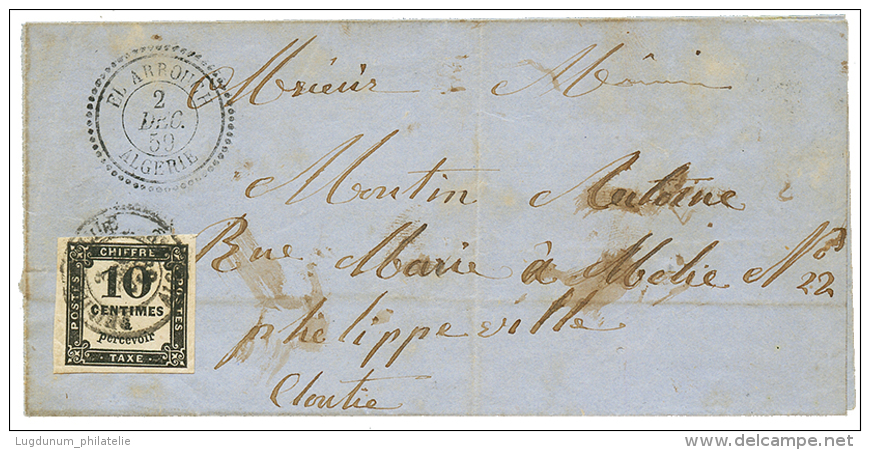 EL ARROUCH
2
DEC.
59
ALGERIE
Moutin Antoine
Rue Marie à Melie No 22
philippeville
CHIFFRE
POSTES
10
CENTIMES
à
percevoir
POSTES
TAXE
Lugdunum_philatelie
delcampe.net